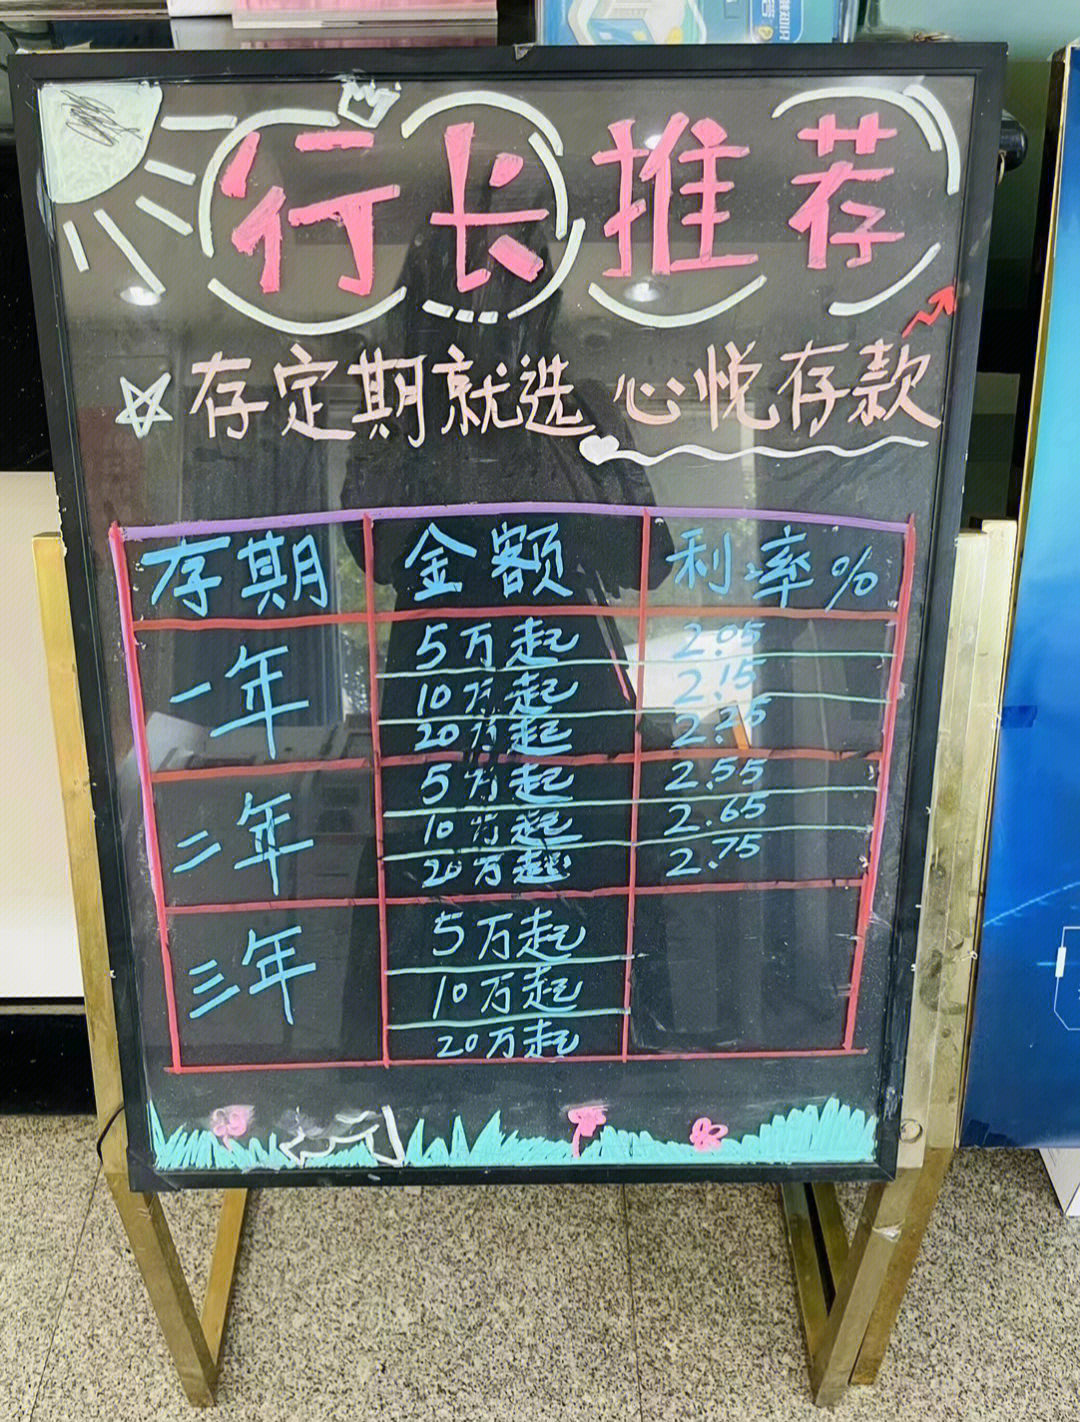 行长推荐
存定期就选 心悦存款
存期 金额 利率%
一年 5万起 2.05
10万起 2.15
20万起 2.25
二年 5万起 2.55
10万起 2.65
20万起 2.75
三年 5万起
10万起
20万起